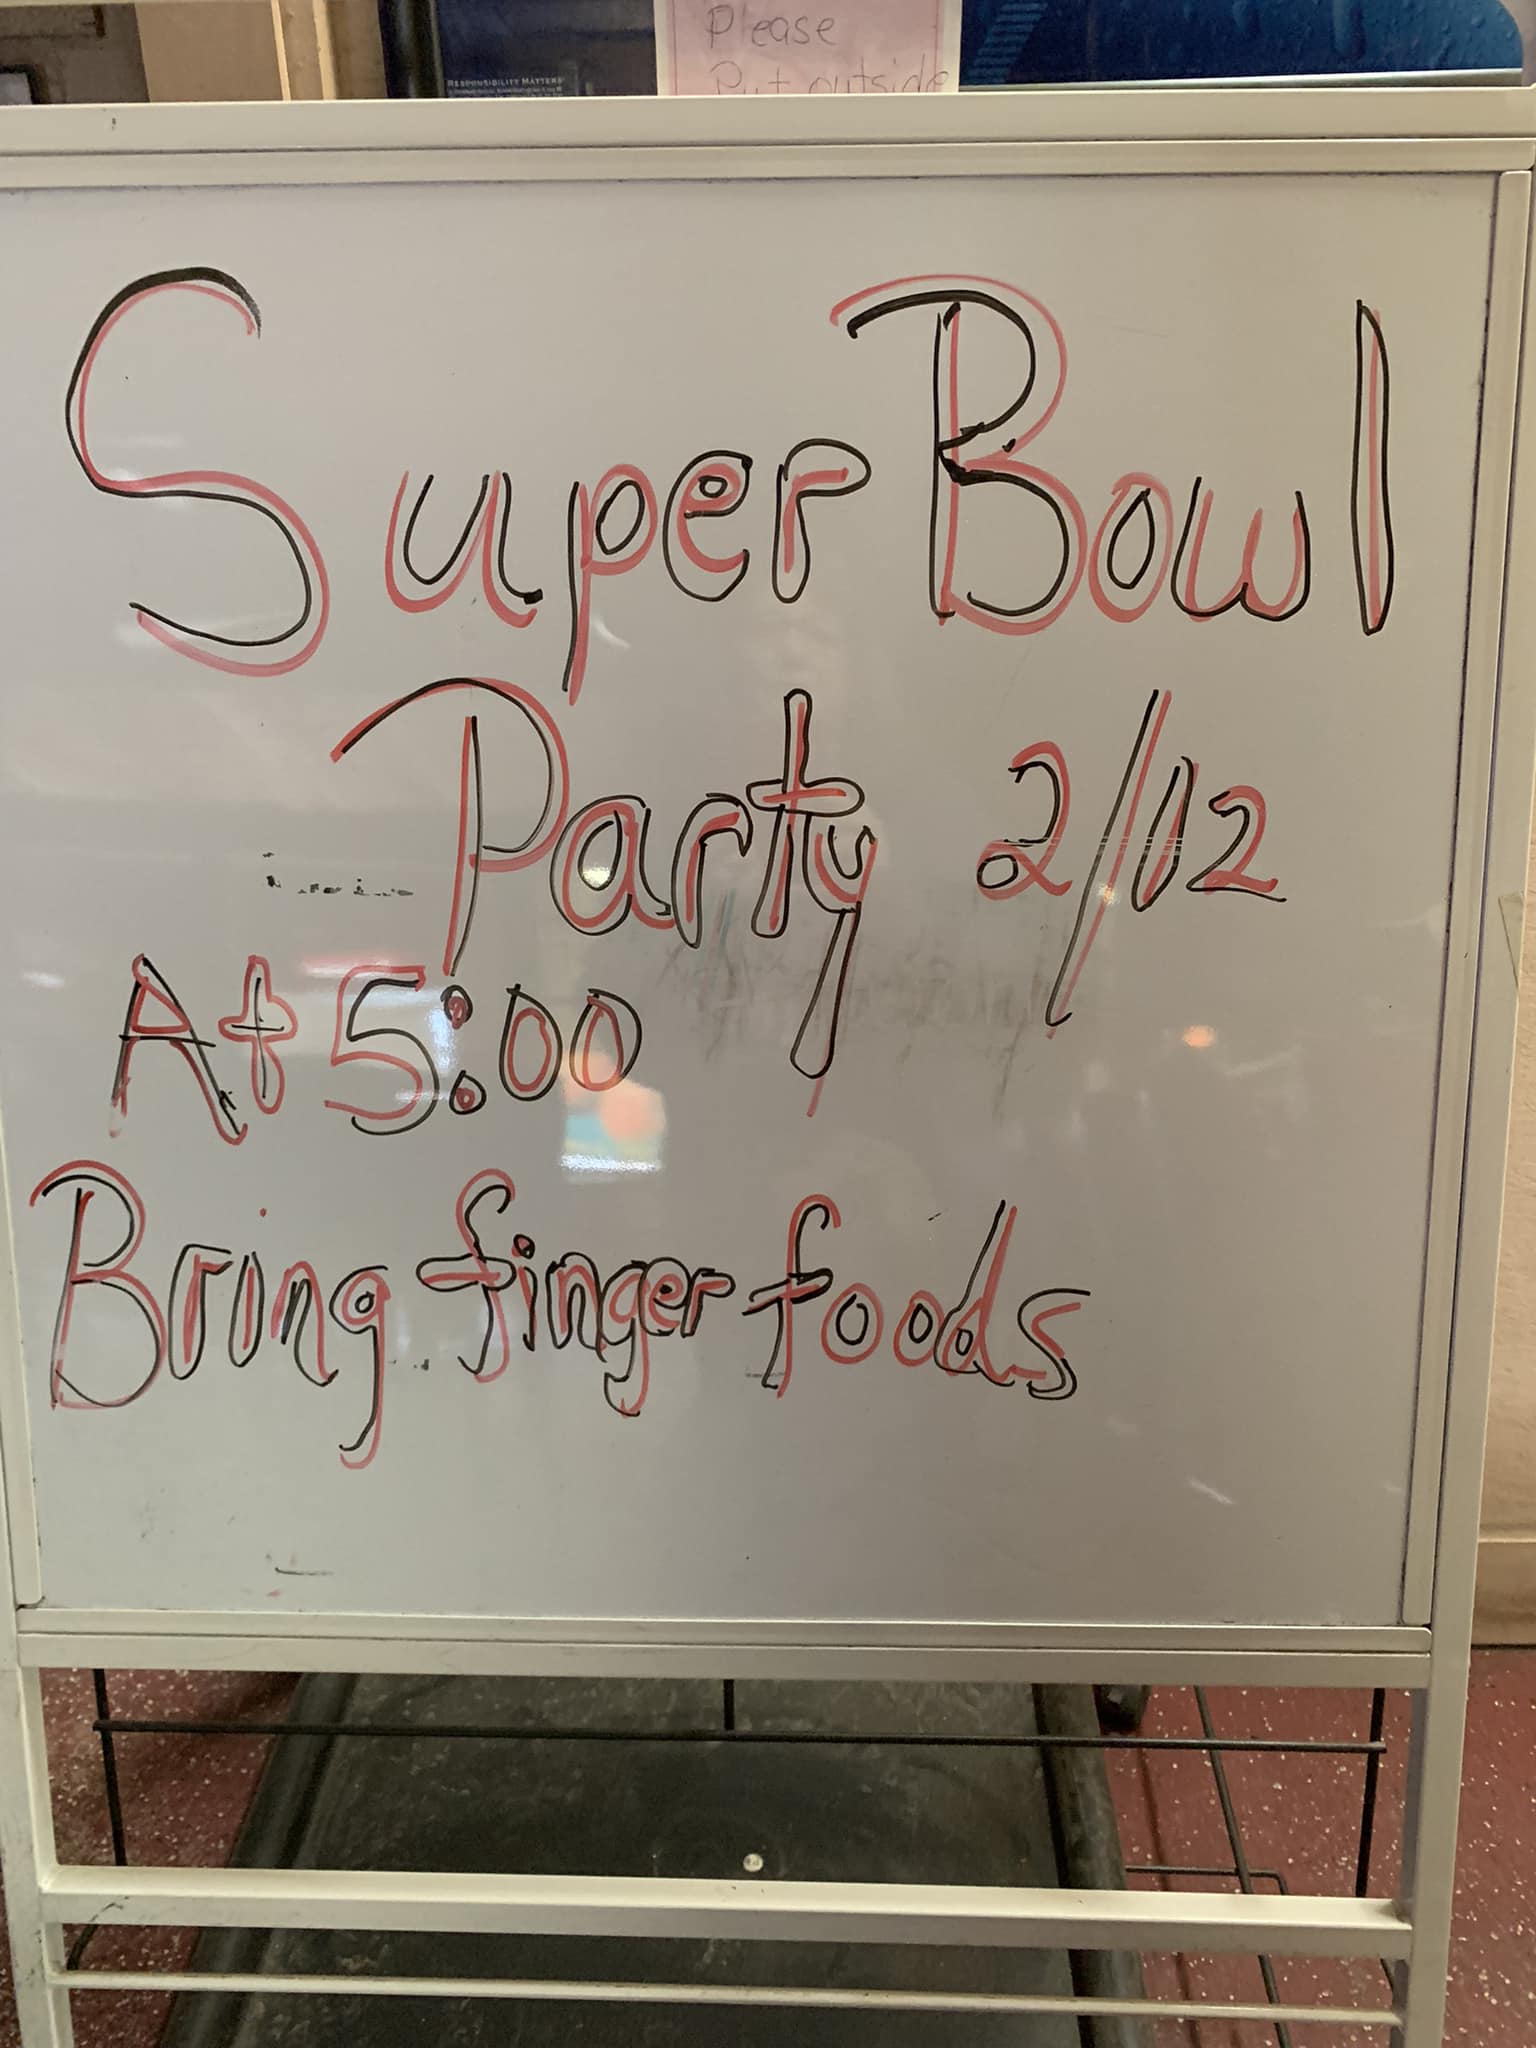 Please
Put outside
RESPONSIBILITY MATTERS
Super Bowl
Party 2/12
At 5:00
Bring finger foods